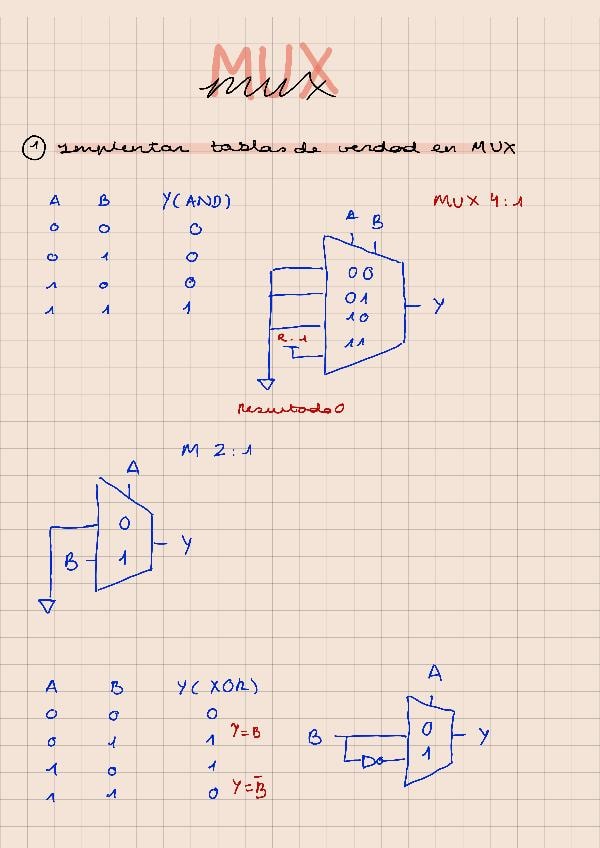 MUX
mux
① Implentar tablas de verdad en MUX
A B Y(AND)
0 0 0
0 1 0
1 0 0
1 1 1
MUX 4:1
A B
00
01
10
11
Y
R.1
Resultado 0
M 2:1
A
0
B 1
Y
A B Y(XOR)
0 0 0
0 1 1 Y=B
1 0 1
1 1 0 Y=B̅
A
B 0 Y
1